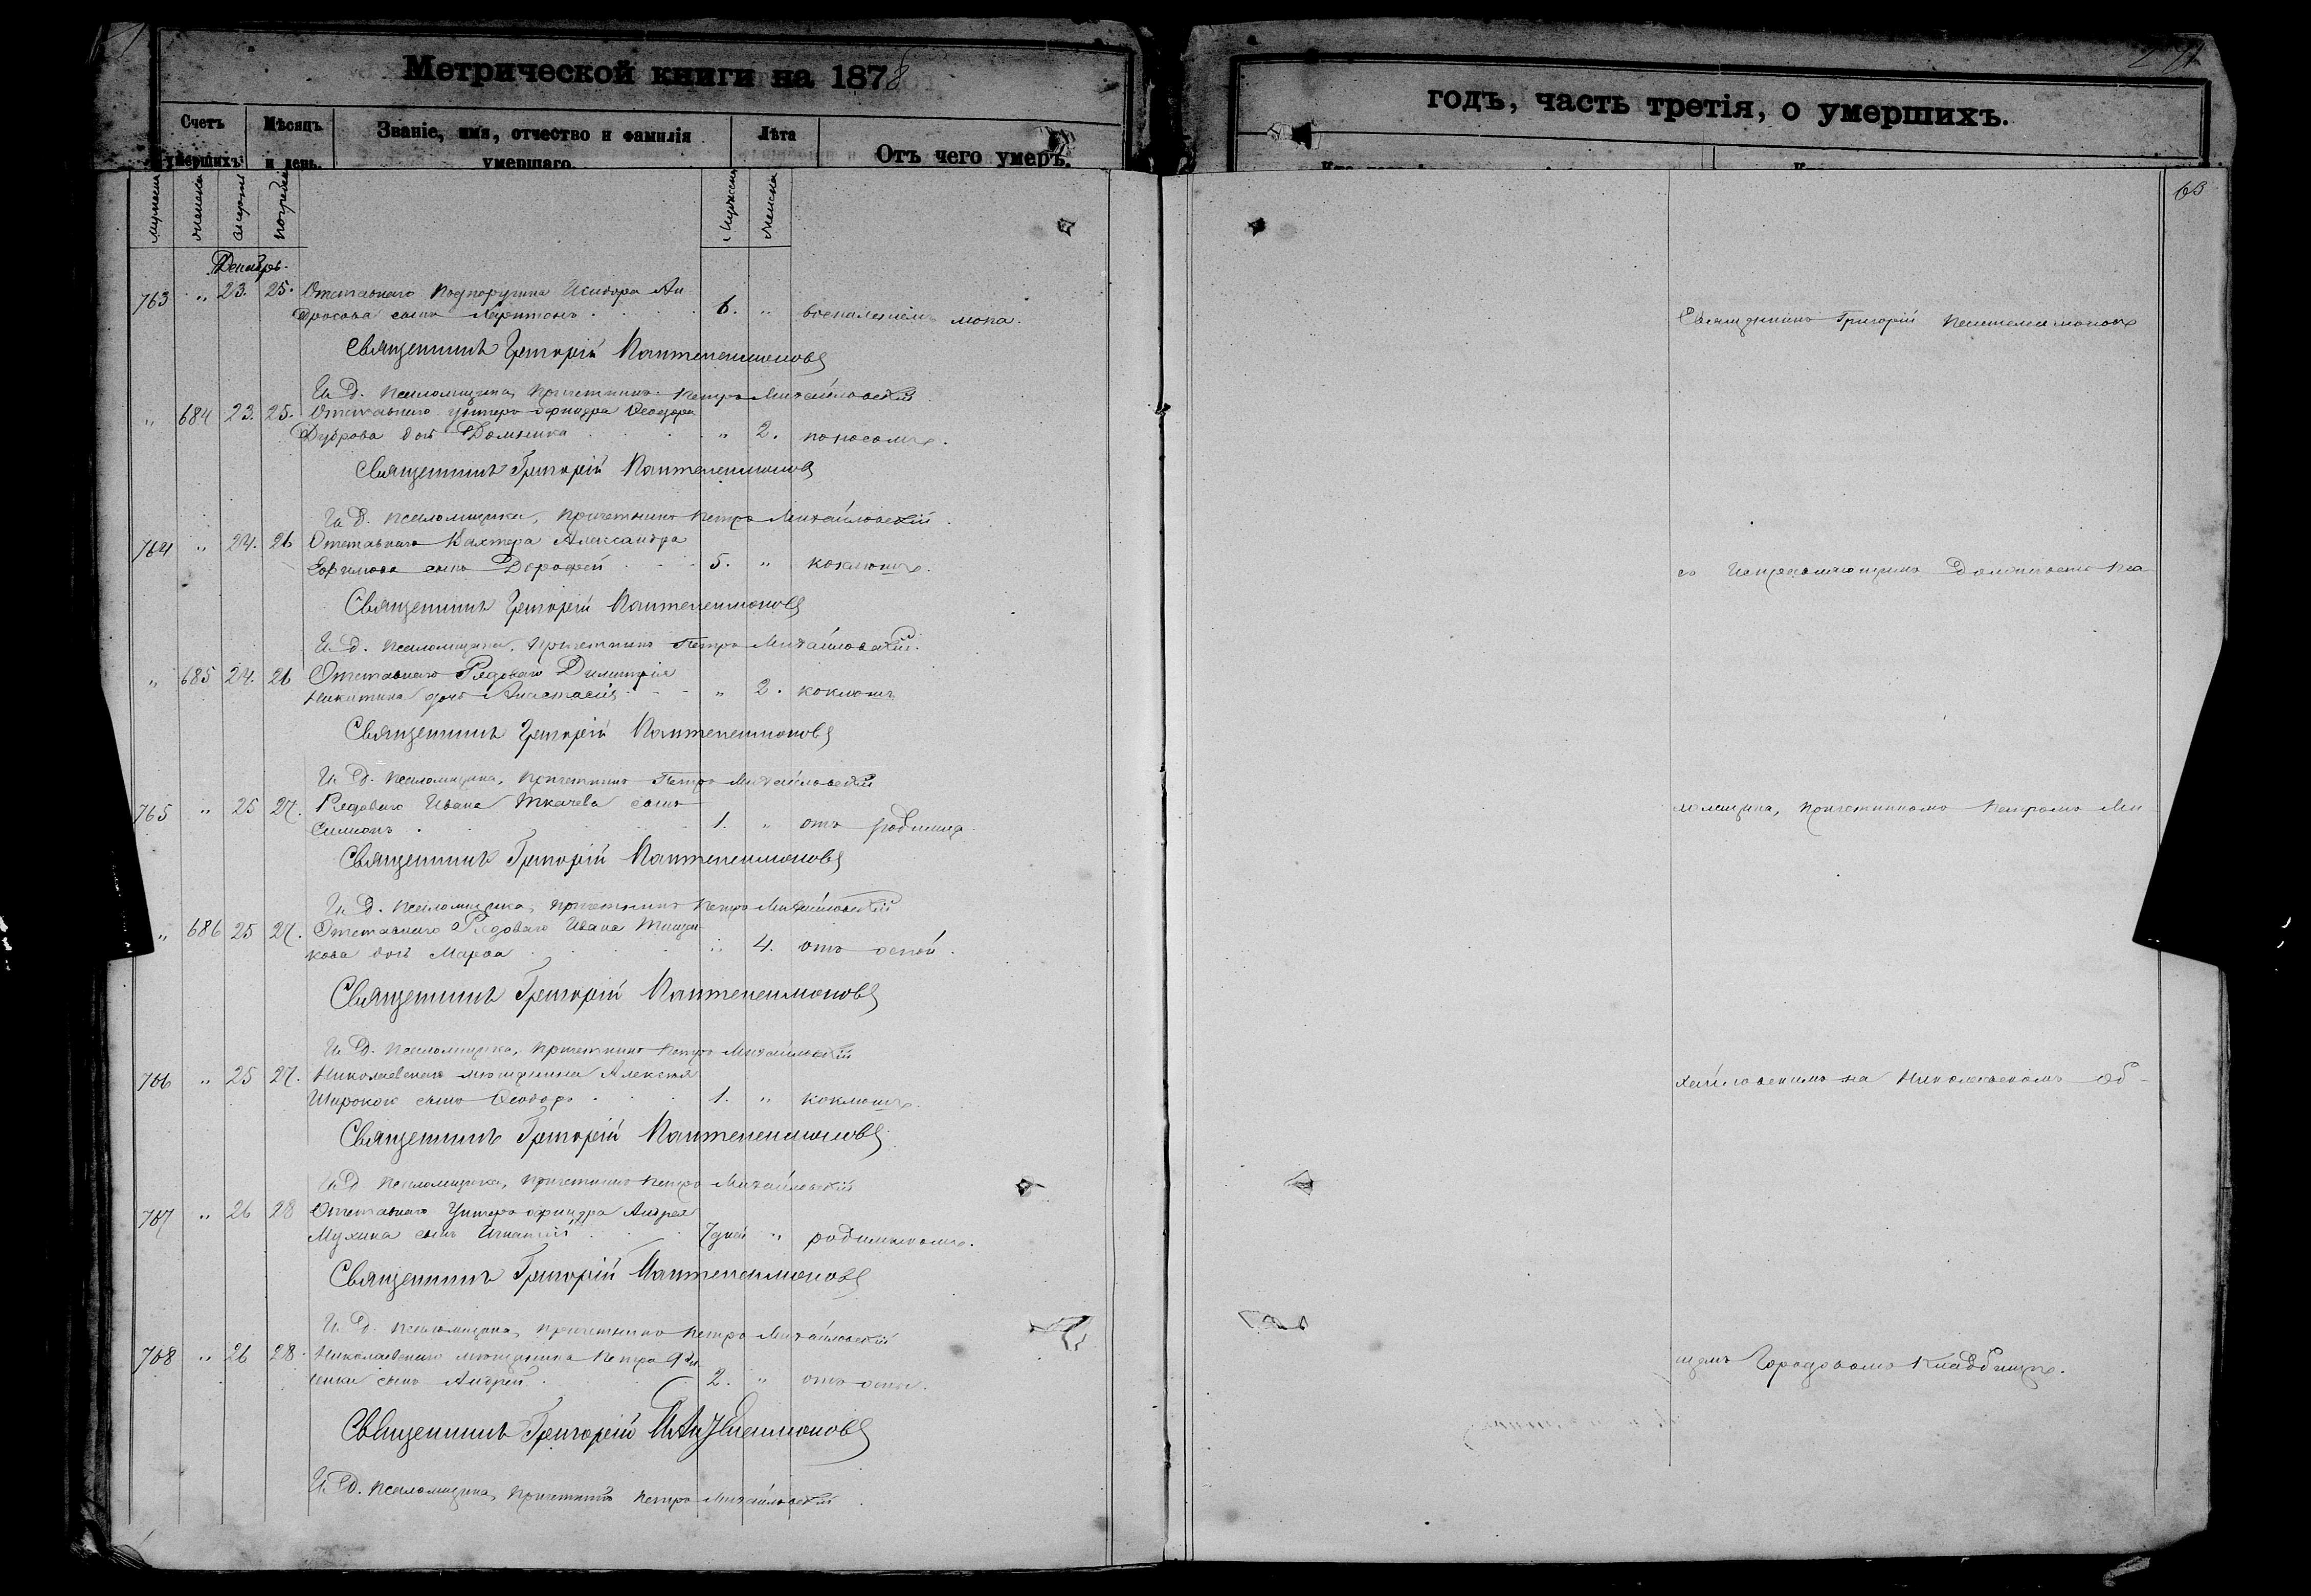 Метрической книги на 1878
годъ, часть третія, о умершихъ.
Счетъ умершихъ.
Мѣсяцъ и день.
Званіе, имя, отчество и фамилія умершаго.
Лѣта
Отъ чего умеръ.
Декабрь.
763 " 23. 25. Отставнаго Подпоручика Исидора Ан
дросова сынъ 6. " воспаленіемъ мозга.
Священникъ Григорій Пантелеимоновъ
И. Д. Псаломщика, Причетникъ Петръ Михайловскій
" 684 23. 25. Отставнаго Унтеръ офицера Ѳеодора
Дуброва дочь Домника " 2. поносомъ.
Священникъ Григорій Пантелеимоновъ
И. Д. Псаломщика, Причетникъ Петръ Михайловскій
764 " 24. 26 Отставнаго Вахтера Александра
Ефимова сынъ Дорофей 5. " коклюшъ.
Священникъ Григорій Пантелеимоновъ
И. Д. Псаломщика, Причетникъ Петръ Михайловскій
" 685 24. 26 Отставнаго Рядоваго Димитрія
Никитина дочь Анастасія " 2. коклюшъ
Священникъ Григорій Пантелеимоновъ
И. Д. Псаломщика, Причетникъ Петръ Михайловскій
765 " 25 27. Рядоваго Ивана Ткачева сынъ
Симеонъ 1. " отъ родимца.
Священникъ Григорій Пантелеимоновъ
И. Д. Псаломщика, Причетникъ Петръ Михайловскій
" 686 25 27. Отставнаго Рядоваго Ивана Тищен
кова дочь Марѳа " 4. отъ оспы.
Священникъ Григорій Пантелеимоновъ
И. Д. Псаломщика, Причетникъ Петръ Михайловскій
766 " 25 27. Николаевскаго мѣщанина Алексѣя
Широкого сынъ Ѳеодоръ 1. " коклюшъ.
Священникъ Григорій Пантелеимоновъ
И. Д. Псаломщика, Причетникъ Петръ Михайловскій
767 " 26 28 Отставнаго Унтеръ офицера Андрея
Мухина сынъ Игнатій 7 дней " родимчикомъ.
Священникъ Григорій Пантелеимоновъ
И. Д. Псаломщика, Причетникъ Петръ Михайловскій
768 " 26 28. Николаевскаго мѣщанина Петра
сынъ Андрей 2. " отъ оспы.
Священникъ Григорій Пантелеимоновъ
И. Д. Псаломщика, Причетникъ Петръ Михайловскій
Священникъ Григорій Пантелеимоновъ
съ Исправляющимъ Должность Пса
ломщика, Причетникомъ Петромъ Ми
хайловскимъ на Николаевскомъ об-
щемъ Городовомъ Кладбищѣ.